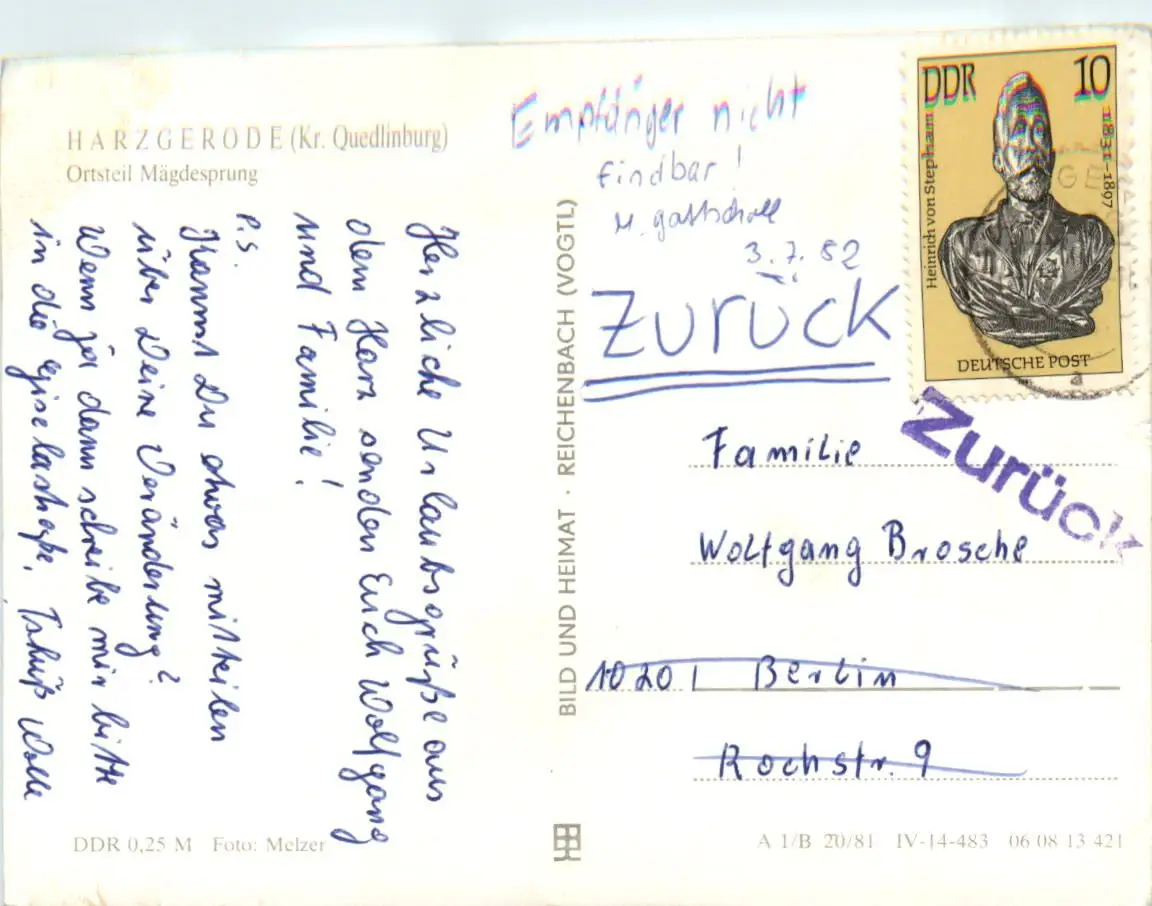 HARZGERODE (Kr. Quedlinburg)
Ortsteil Mägdesprung
Herzliche Urlaubsgrüße aus
dem Harz senden Euch Wolfgang
und Familie!
P.S.
Kannst Du etwas mitteilen
über Deine Veränderung?
Wenn ja dann schreibe mir bitte
in die
Tschüß Wolle
DDR 0,25 M Foto: Melzer
BILD UND HEIMAT · REICHENBACH (VOGTL)
Empfänger nicht
findbar!
3.7.82
Zurück
DDR 10
Heinrich von Stephan 1831–1897
DEUTSCHE POST
Zurück
Familie
Wolfgang Brosche
1020 Berlin
Rochstr. 9
A 1/B 20/81 IV-14-483 06 08 13 421